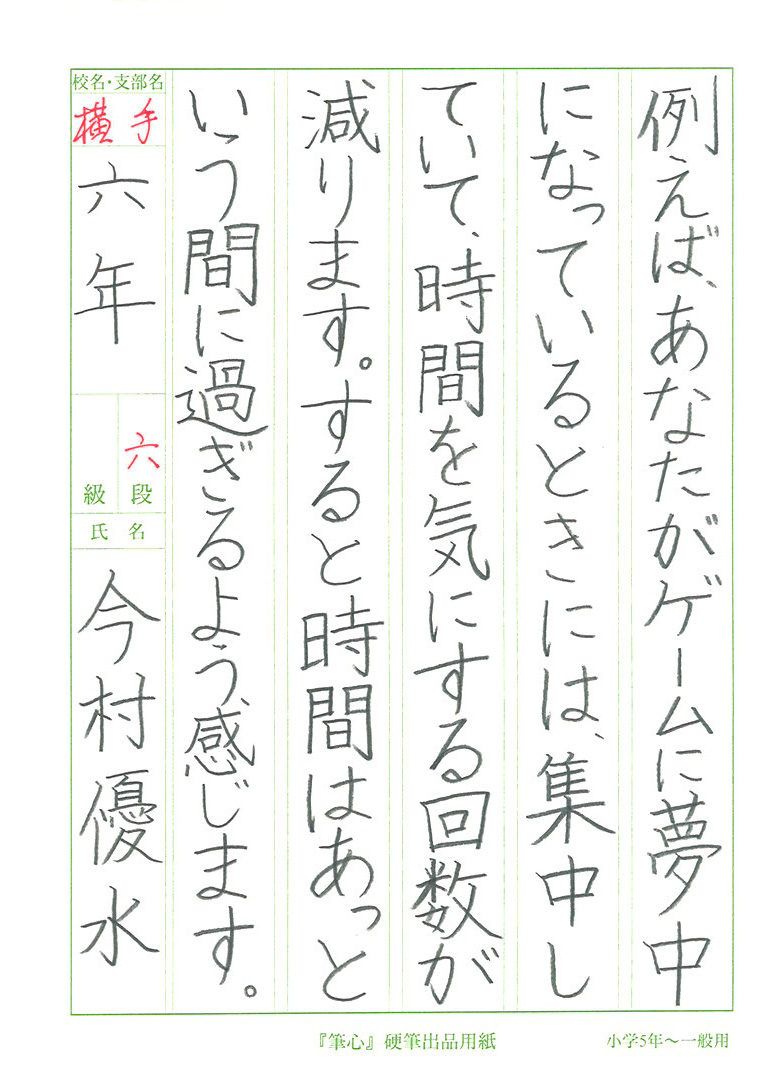 例えば、あなたがゲームに夢中
になっているときには、集中し
ていて、時間を気にする回数が
減ります。すると時間はあっと
いう間に過ぎるよう、感じます。
校名・支部名
横手
六年
六
級段
氏名
今村優水
『筆心』硬筆出品用紙
小学5年〜一般用